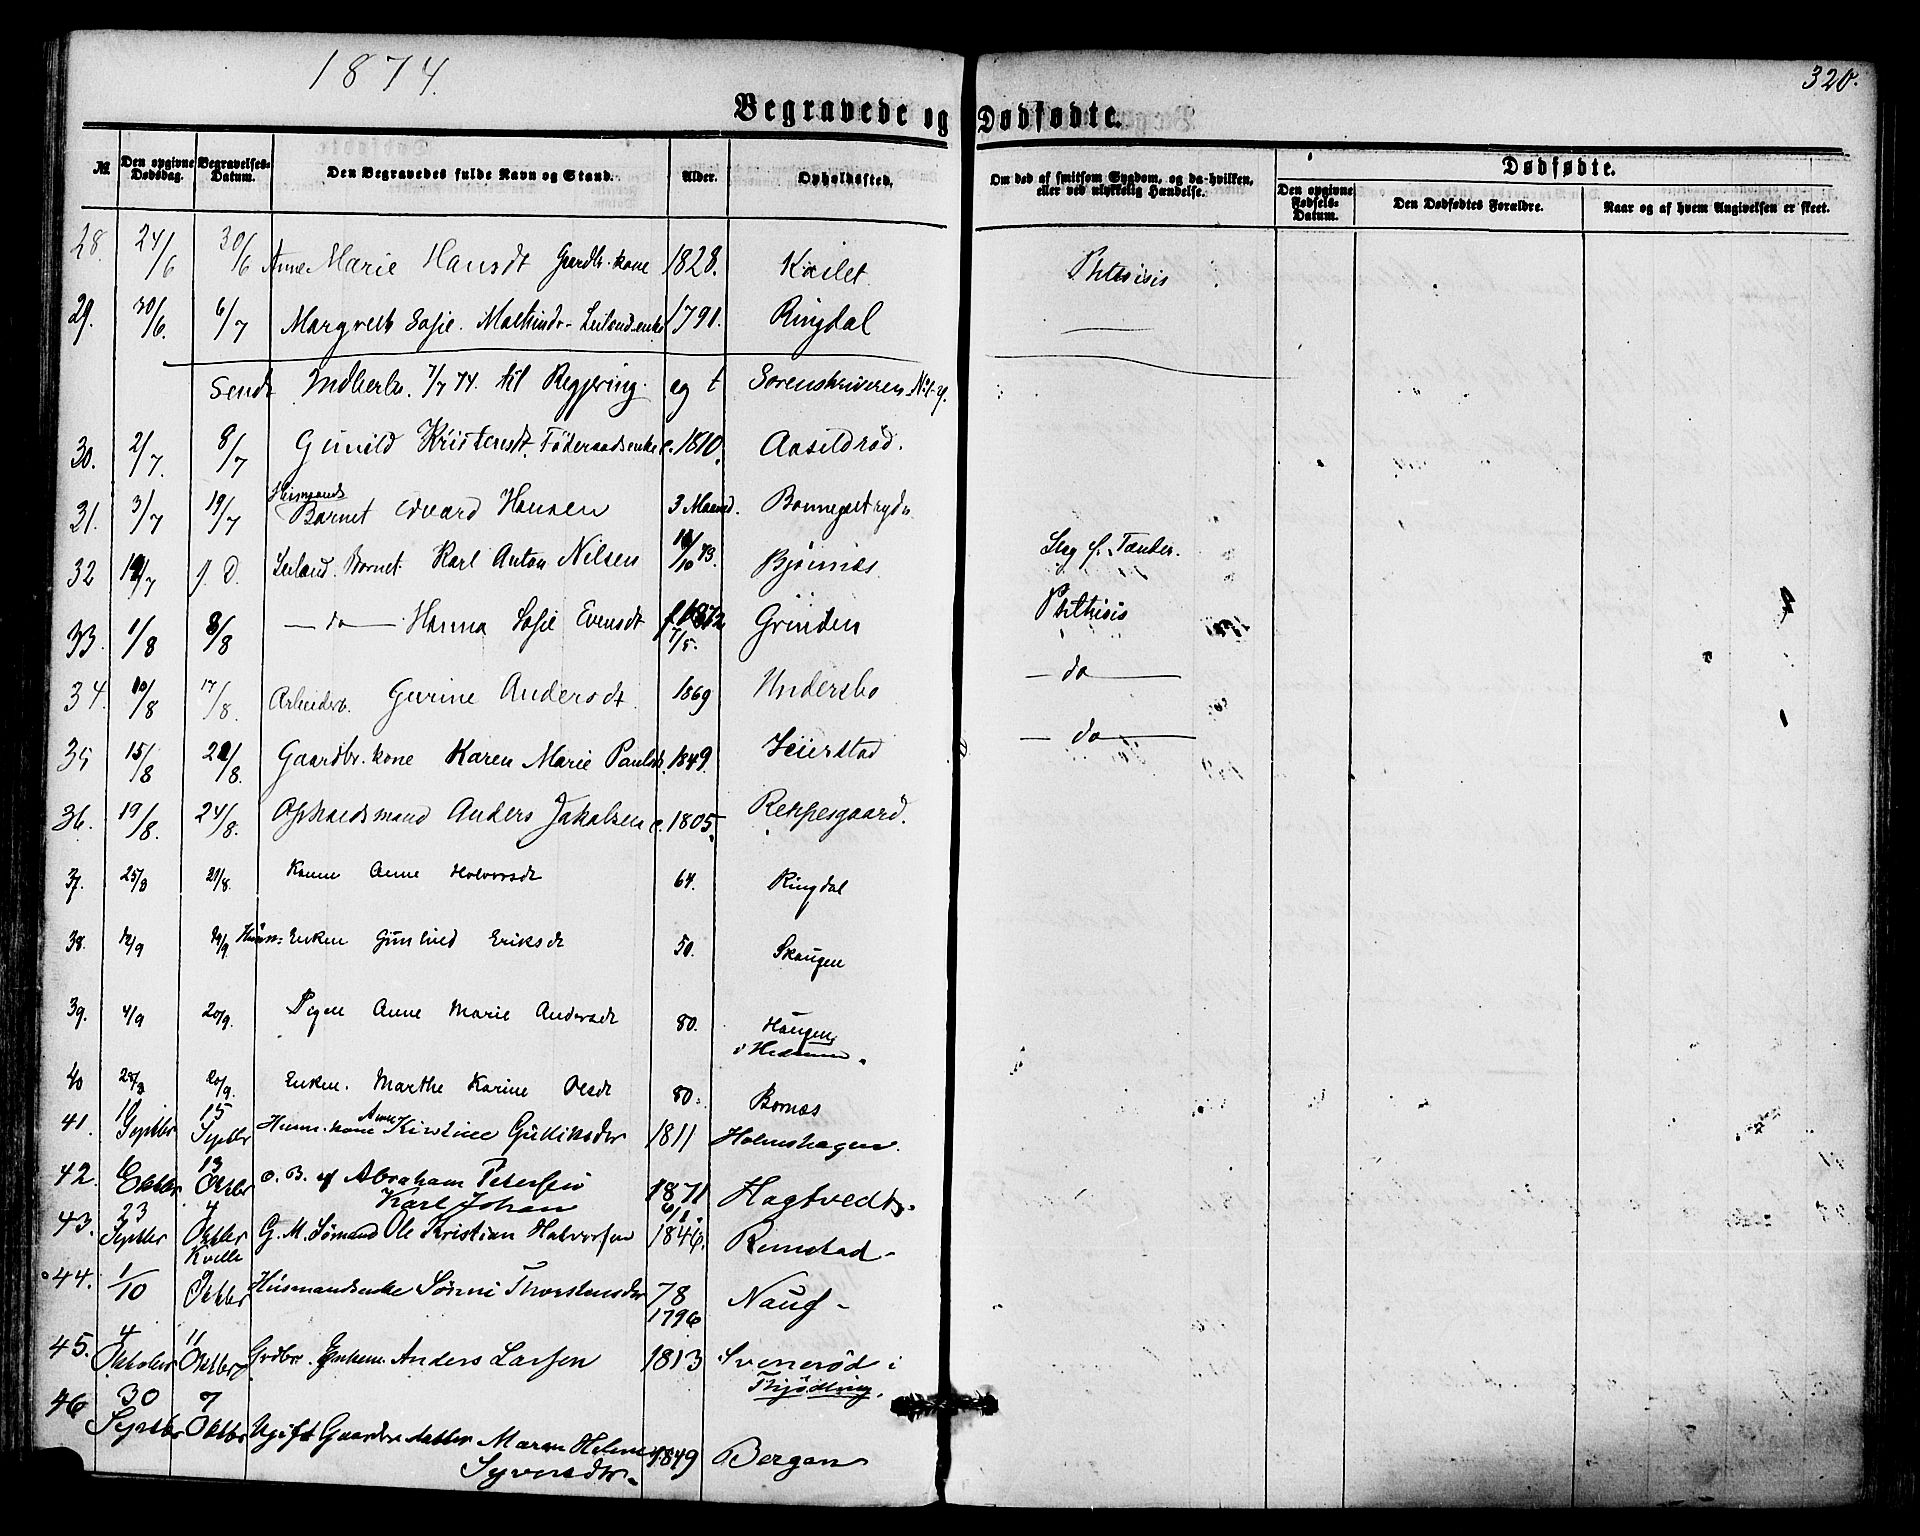 1874.
320.
Begravede og Dødfødte.
№ Den opgivne Dødsdag. Begravelses-Datum. Den Begravedes fulde Navn og Stand. Alder. Opholdssted. Om død af smitsom Sygdom, og da hvilken, eller ved ulykkelig Hændelse. Dødfødte.
Den opgivne Fødsels-Datum. Den Dødfødtes Forældre. Naar og af hvem Angivelsen er skeet.
28. 24/6 30/6 Anne Marie Hansdt Gaardb. kone 1828. Phthisis
29. 30/6 6/7 Sofie. 1791. Ringdal
Sendt Indberb. 7/7 74. til Regjering. og t Sorenskriveren
30. 2/7. 8/7 Gunild Kristensdt. Föderaadsenke c. 1810.
31. 3/7 19/7 Barnet Edvard Hansen 3 Maand.
32 /7 s. D. Leiland. Barnet. Karl Anton Nilsen /10 73. Bjørnæs. Slag f. Tænder.
33. 1/8 8/8 — do — Hanna Sofie Evensdt f. 1872 7/5. Grinden Phthisis
34. 10/8 17/8. Gurine Andersdt. 1869 Undersbo — do —
35 15/8 /8. Gaardbr. kone Karen Marie Paulsdt. 1849. Seierstad — do —
36. 19/8. 24/8. Anders Jakobsen c. 1805. Reppesgaard.
37. 25/8 21/8. Konen Anne Halvorsdt 64. Ringdal
38. 12/9 Enken Gunhild Eriksdt 50. Skaugen
39. 4/9 20/9. Pigen Anne Marie Andersdt 80. Haugen
i Hedrum.
40 20/9. Enken. Marthe Karine Olsdt 80. Bornæs
41. 15
Septbr Septbr Husm. kone Anne Kirstine 1811 Holmshagen.
42. 6 13
Oktbr Oktbr o. B. af Abraham Petersen
Karl Johan 1871 6/1. Hagtvedt.
43. 23 4
Septbr Oktbr G. M. Sømand Ole Kristian Halvorsen 1846. Rimstad
Kvelle
44. 1/10 Oktbr Husmandsenke Thorstensdtr 78
1796
45. 4 11
Oktober Oktbr Grdbr. Enkem. Anders Larsen 1813 Svenerød i
Thjødling.
46 30 7
Septbr Oktbr Ugift Gaardbr datter Maren Helene 1849 Bergan
Syversdtr.